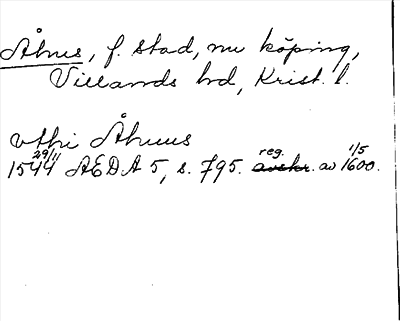 Åhus, f. stad, nu köping,
Villands hd, Krist. l.
vthi Åhuus
29/11 reg. 1/5
1544 AEDA 5, s. 795. avskr. av 1600.